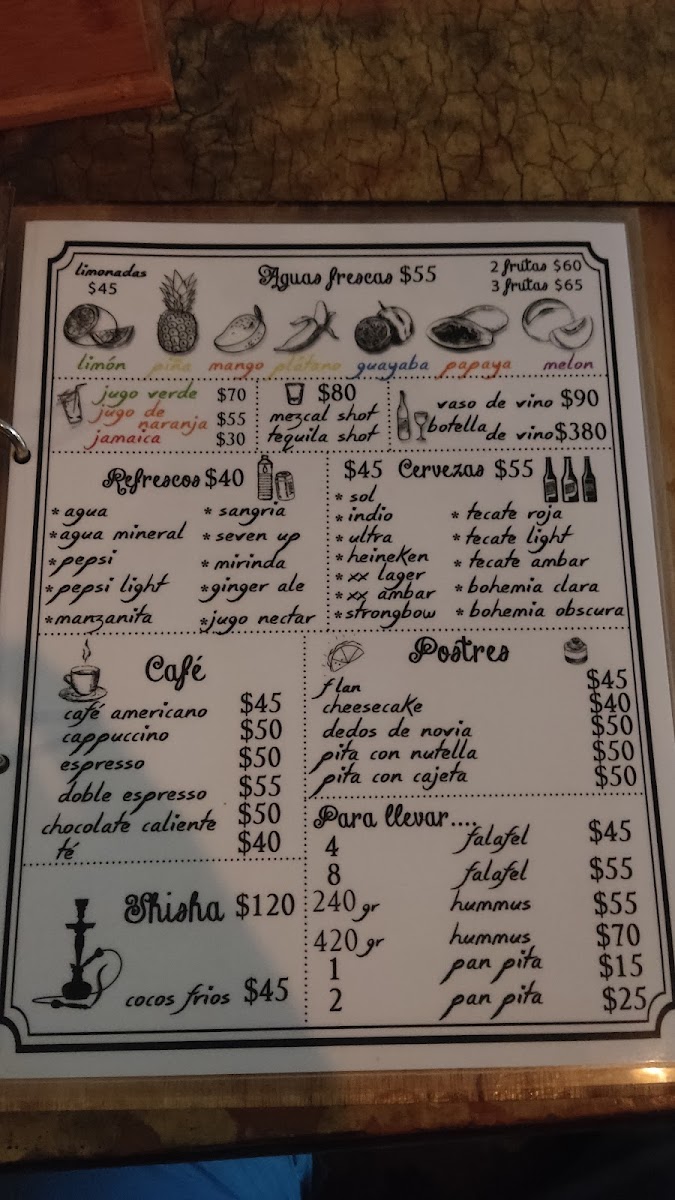 limonadas
$45
Aguas frescas $55
2 frutas $60
3 frutas $65
limón piña mango plátano guayaba papaya melon
jugo verde $70
jugo de
naranja $55
jamaica $30
$80
mezcal shot
tequila shot
vaso de vino $90
botella
de vino $380
Refrescos $40
* agua
* agua mineral
* pepsi
* pepsi light
* manzanita
* sangria
* seven up
* mirinda
* ginger ale
* jugo nectar
$45 Cervezas $55
* sol
* indio
* ultra
* heineken
* xx lager
* xx ambar
* strongbow
* tecate roja
* tecate light
* tecate ambar
* bohemia clara
* bohemia obscura
Café
café americano $45
cappuccino $50
espresso $50
doble espresso $55
chocolate caliente $50
té $40
Postres
flan $45
cheesecake $40
dedos de novia $50
pita con nutella $50
pita con cajeta $50
Shisha $120
cocos frios $45
Para llevar....
4 falafel $45
8 falafel $55
240 gr hummus $55
420 gr hummus $70
1 pan pita $15
2 pan pita $25